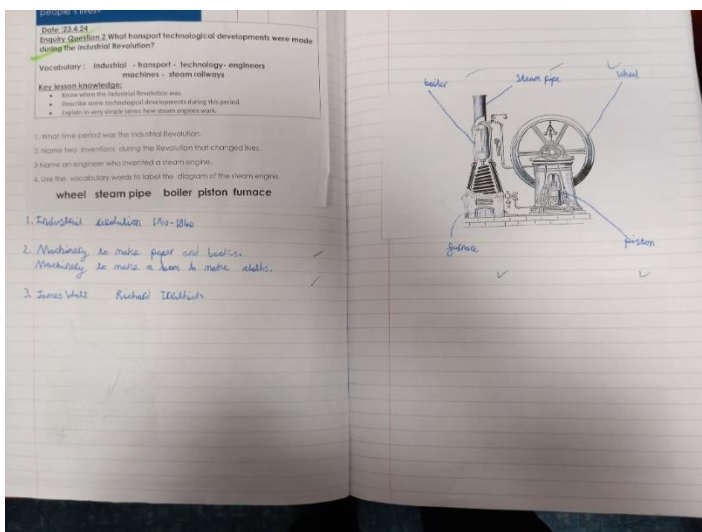 people's lives?
Date :23.4.24
Enquiry Question 2 What transport technological developments were made
during the Industrial Revolution?
Vocabulary : industrial - transport - technology- engineers
machines - steam railways
Key lesson knowledge:
• Know when the Industrial Revolution was.
• Describe some technological developments during this period.
• Explain in very simple terms how steam engines work.
1. What time period was the Industrial Revolution.
2. Name two inventions during the Revolution that changed lives.
3 Name an engineer who invented a steam engine.
4. Use the vocabulary words to label the diagram of the steam engine.
wheel steam pipe boiler piston furnace
1. Industrial revolution 1700-1840
2. Machinery to make paper and books.
Machinery to make a loom to make cloths.
3. James Watt Richard
boiler
Steam pipe
wheel
furnace
piston